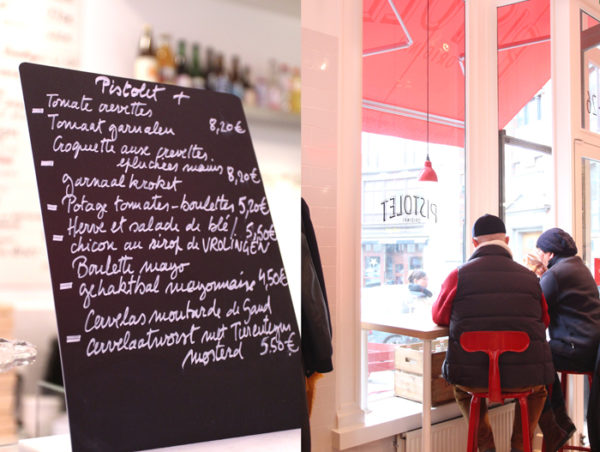 Pistolet +
Tomate crevettes
Tomaat garnalen 8,20€
Croquette aux crevettes
épluchées mains 8,20€
garnaal kroket
Potage tomates-boulettes 5,20€
Herve et salade de blé / 5,50€
chicon au sirop de VROLINGEN
Boulette mayo
gehaktbal mayonnaise 4,50€
Cervelas moutarde de Gand
cervelaatworst met
mosterd 5.50€
PISTOLET
ORIGINAL
26